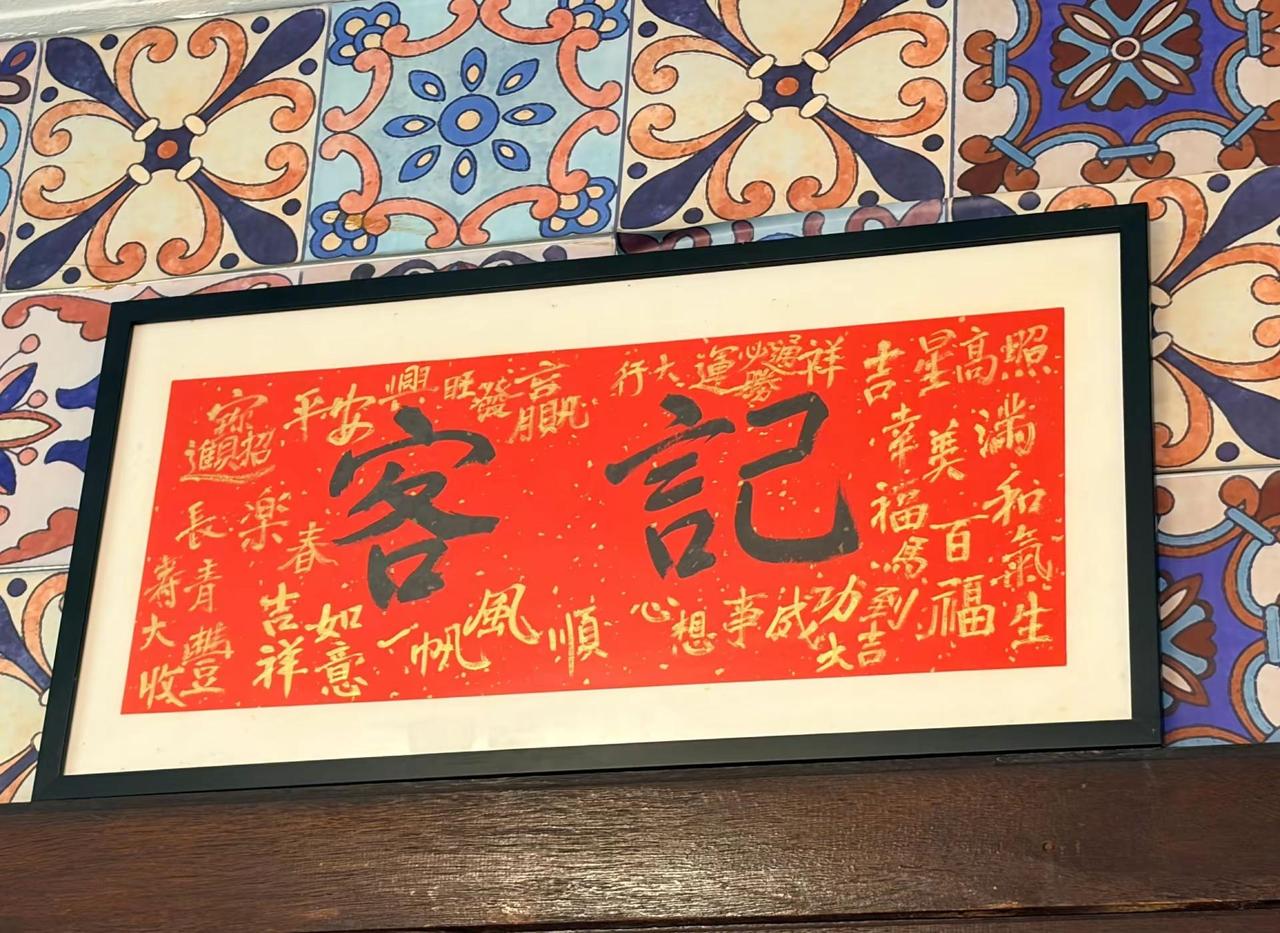 客記
招財進寶
平安
興旺發
行大運
必勝
吉星高照
幸福美満
和氣生
百福
馬到功成
大吉
心想事成
一帆風順
吉祥如意
長楽
春
青
寿
大豐收